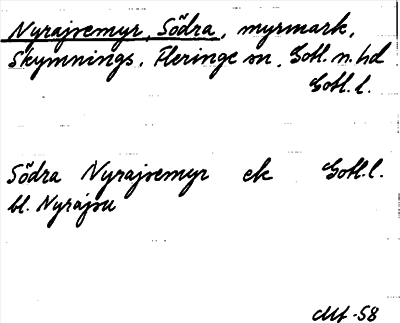 Nyrajsemyr, Södra, myrmark,
Skymnings, Fleringe sn, Gotl. n. hd
Gotl. l.
Södra Nyrajsemyr ek Gotl. l.
bl. Nyrajsu
-58